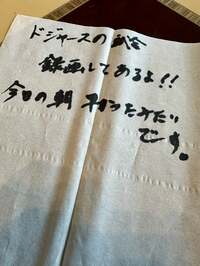 ドジャースの試合
録画してあるよ!!
今日の朝 やってたみたい
です。